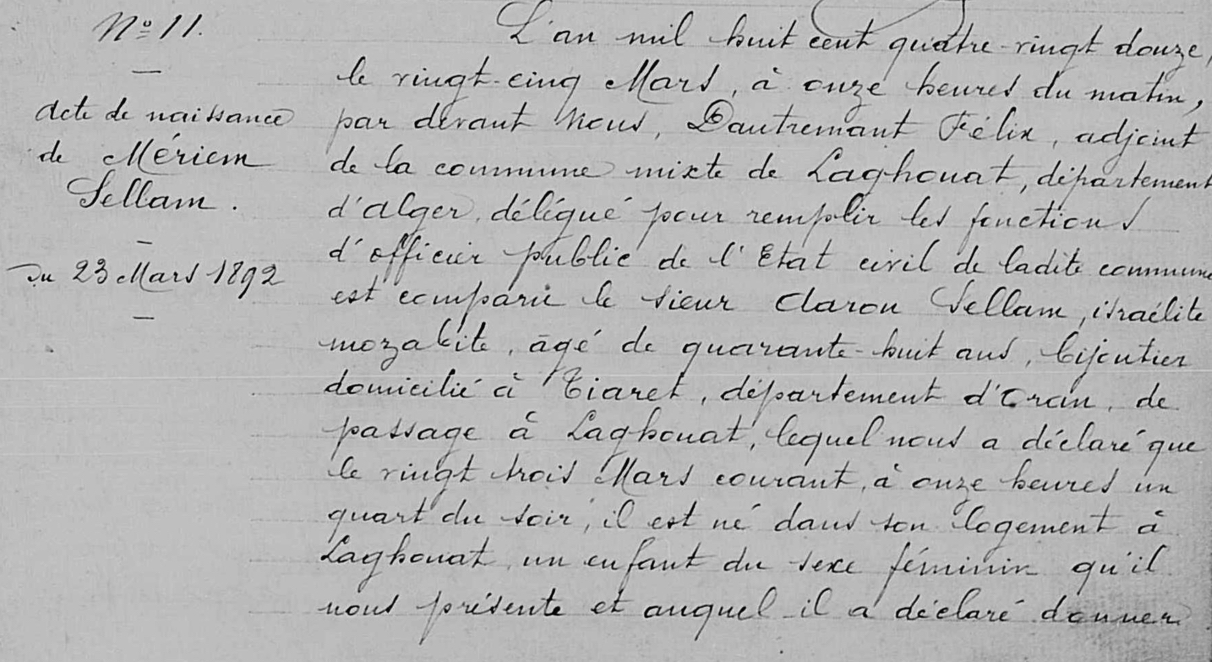 Nº 11.
Acte de naissance
de Mériem
Sellam.
du 23 Mars 1892
L'an mil huit cent quatre-vingt douze,
le vingt-cinq Mars, à onze heures du matin,
par devant Nous, Dautremant Félix, adjoint
de la commune mixte de Laghouat, département
d'Alger, délégué pour remplir les fonctions
d'officier public de l'Etat civil de ladite commune
est comparu le sieur Aaron Sellam, israélite
mozabite, âgé de quarante-huit ans, bijoutier
domicilié à Tiaret, département d'Oran, de
passage à Laghouat, lequel nous a déclaré que
le vingt trois Mars courant, à onze heures un
quart du soir, il est né dans son logement à
Laghouat un enfant du sexe féminin qu'il
nous présente et auquel il a déclaré donner